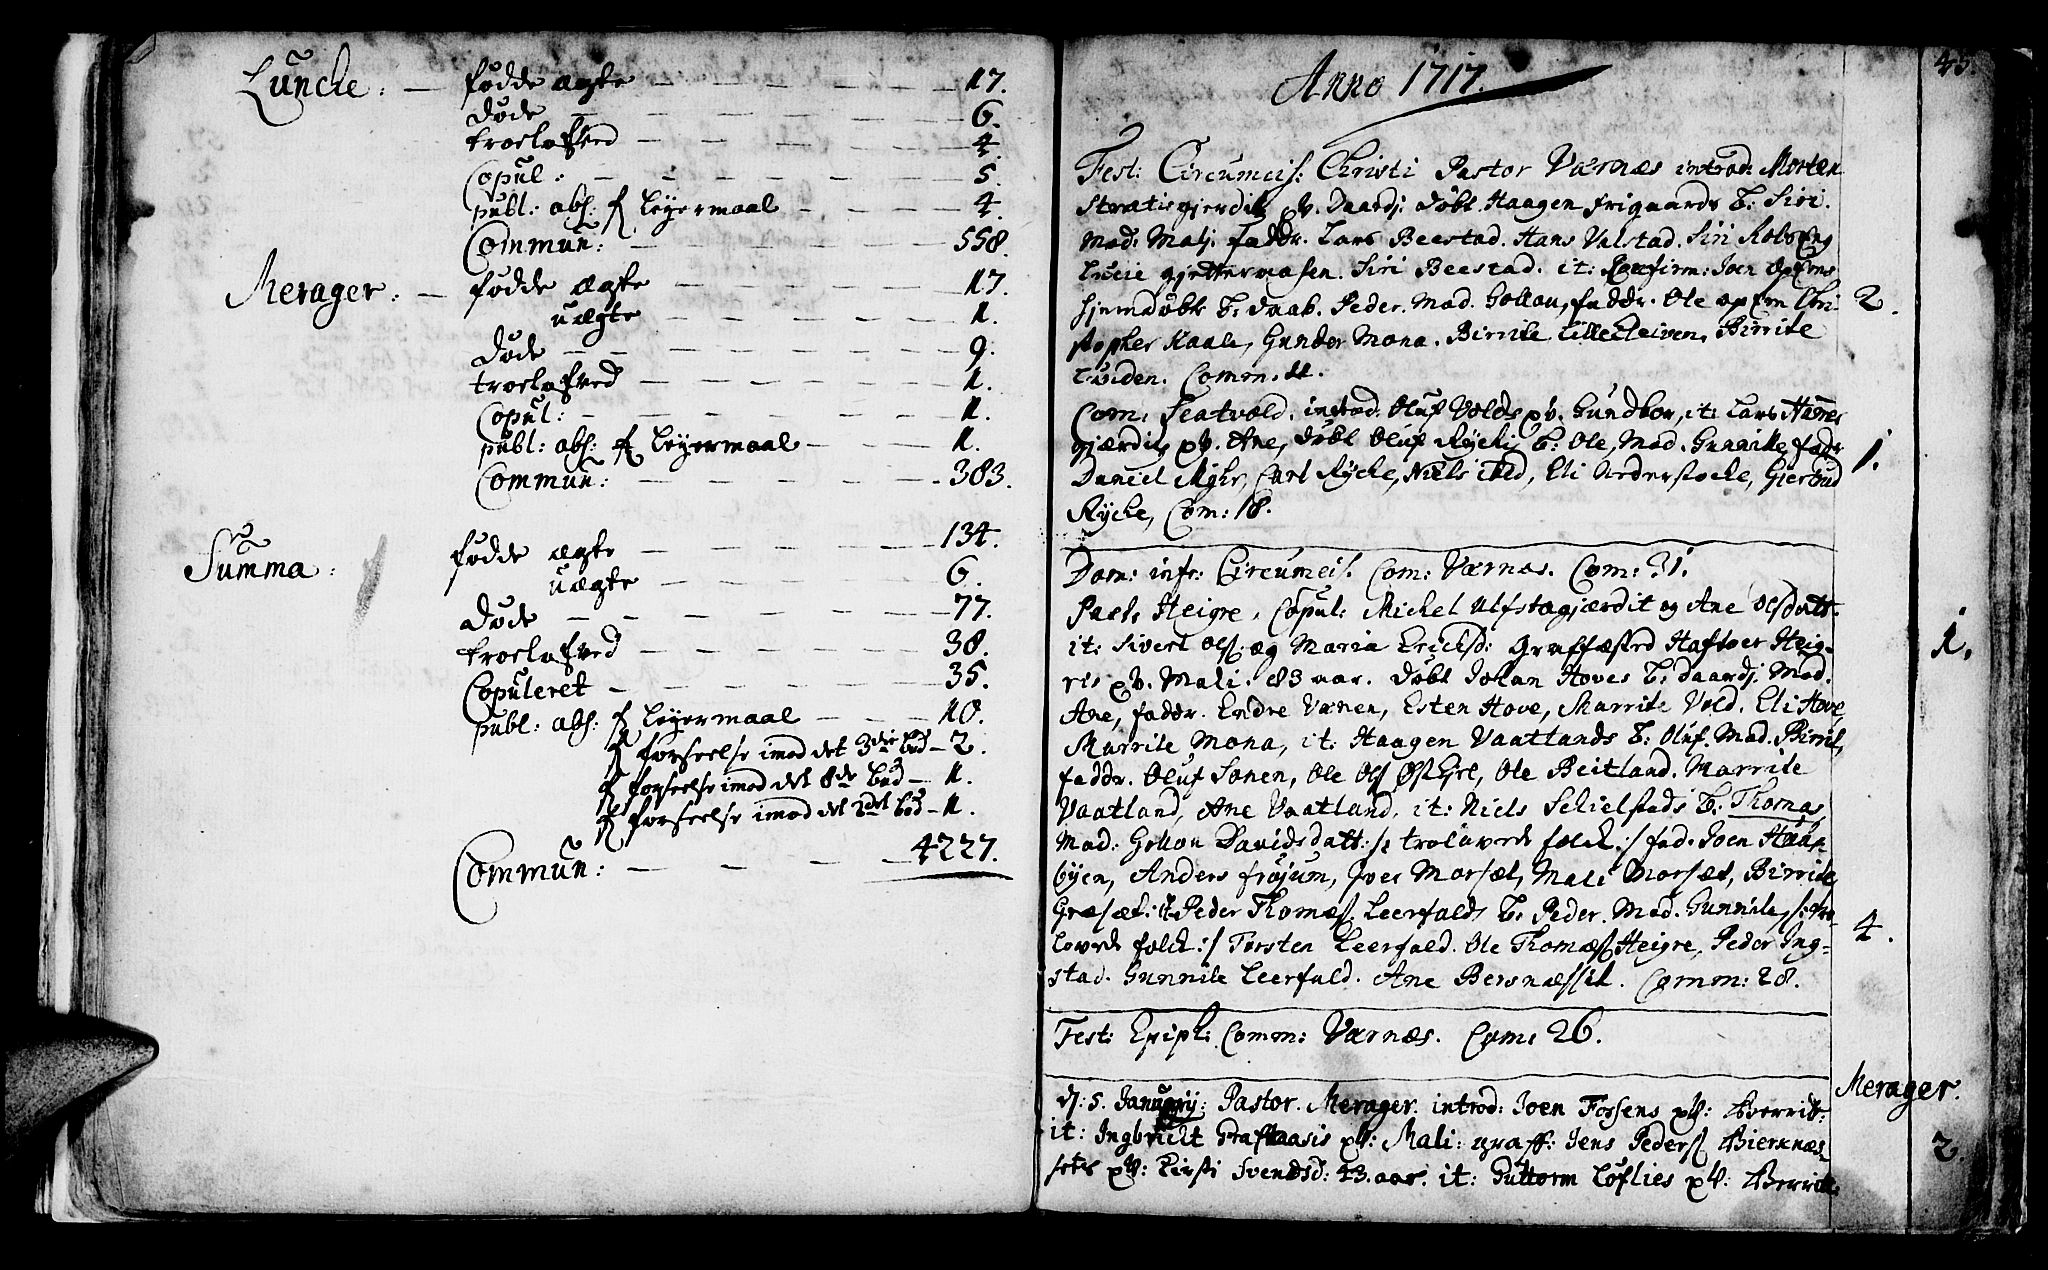 Lunche: — fødde ægte — — — — 17.
døde — — — — — 6.
troelofved — — — — 4.
Copul: — — — — 5.
publ: abs: f leyermaal — — — 4.
Commun: — — — — 558.
Merager: — fødde ægte — — — — 17.
uægte — — — — 1.
døde — — — — — 9.
troelofved — — — — 1.
Copul: — — — — 1.
publ: abs: f leyermaal — — — 1.
Commun: — — — — 383.
Summa: fødde ægte — — — — 134.
uægte — — — — 6.
døde — — — — — 77.
troelofved — — — — 38.
Copuleret — — — — 35.
publ: abs: f leyermaal — — — 10.
f forseelse imod det 3die bud — 2.
f forseelse imod det 8de bud — 1.
f forseelse imod det 2det bud — 1.
Commun: — — — — 4227.
45.
Anno 1717.
Fest: Circumcis: Christi Pastor Værnæs introd: Morten
gjerdit pV. Daardj. døbt Haagen frigaards B: Siri.
Mod: Mali. faddr. Lars Beestad. Hans Valstad. Siri
Lucie gjettermosen. Siri Beestad. it: Confirm: Joen
hjemdøbte B. daab. Peder. Mod. Gollou, faddr. Ole opfem Chri-
2.
stopher Kaale, Gunder Mona. Birrite Lillecleiven, Birrite
Commn. 11.
Com. Scatvold. introd. Oluf Volds pV. Gundbor, it: Lars
gjærdit, pV. Ane, døbt Oluf Ryckis B: Ole, Mod. Gunnille faddr
1.
Daniel Myhr, Carl Rycke, Niels ibid, Eli Arderstocke, Gierttrud
Rycke, Com: 18.
Dom: infr: Circumcis. Com: Værnæs. Com: 31.
Past: Heigre, Copul: Michel Ulfstagjærdit og Ane Olsdatt.
it: Sivert Ols. og Maria Ericksd: Graffæsted Haftoer Heig-
1.
ris pV. Mali. 83 aar. døbt Johan Hoves B. daardj. Mod.
Ane, faddr. Endre Værnen, Esten Hove, Marrite Vold. Eli Hove,
Marrite Mona, it: Haagen Vaatlands B: Oluf. Mod. Birrit,
faddr. Oluf Sonen, Ole Ols Østkjel, Ole Beitland. Marrite
Vaatland, Ane Vaatland. it: Niels Schielstads B: Thomas,
Mod: Gollou Davidsdatt: /: trolovede folck :/ fad. Joen
byen, Anders frøjum, Iver Morsæt, Mali Morsæt, Birrite
Græsæt: it Peder Thomæs. Leerfalds B. Peder. Mod. Gunnile, /: tro
lovede folck :/ Torsten Leerfald. Ole Thomæs Heigre, Peder Ing-
4.
stad. Gunnile Leerfald. Ane Bersnæssit. Comm: 28.
Fest: Epiph: Comm: Værnæs. Com: 26.
Merager.
d: 5. Januarij: Pastor. Merager. introd: Joen Fossens pV: Berrit:
it: Ingbricht pV: Mali: graff: Jens Peders Bierknæs-
2.
sets pV: Kirsti Svendsd: 43. aar. it: Guttorm Løflies pV: Berrit